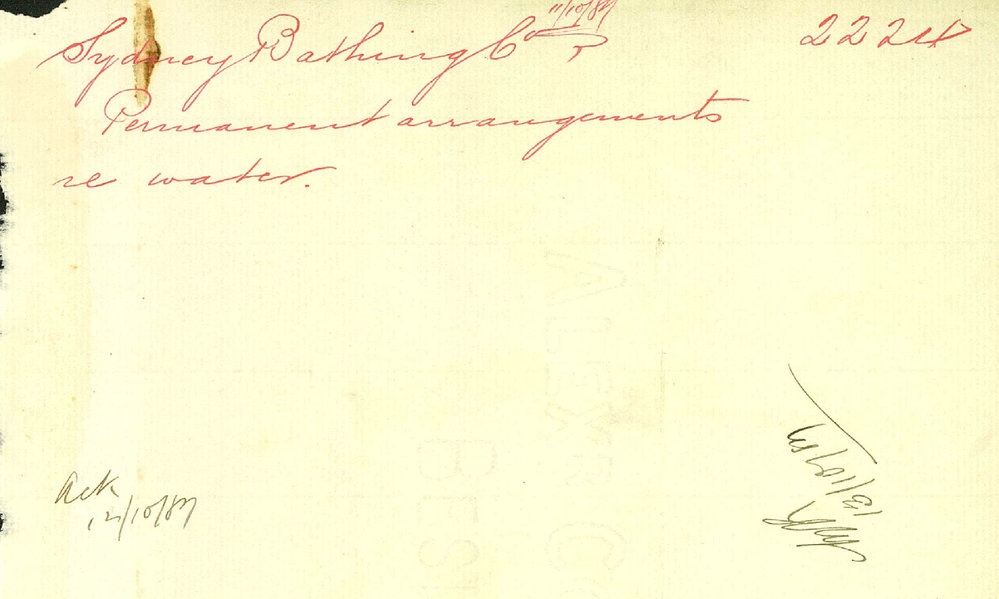 11/10/87
Sydney Bathing Co 2224
Permanent arrangements
re water.
Ack
12/10/87
13/10/87